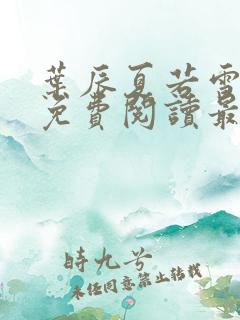 葉辰夏若雪
免費閱讀最
時九兮
未經同意禁止轉載